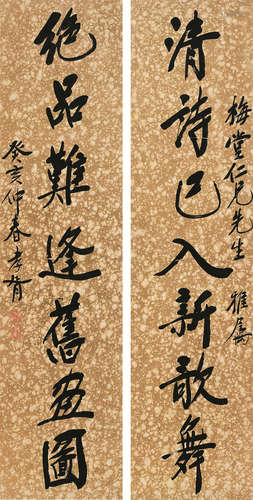 梅堂仁兄先生 雅屬
清詩已入新歌舞
絕品難逢舊畫圖
癸亥仲春孝胥